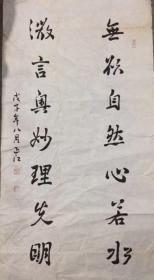 無欲自然心若水
微言奥妙理先明
戊子年八月正江